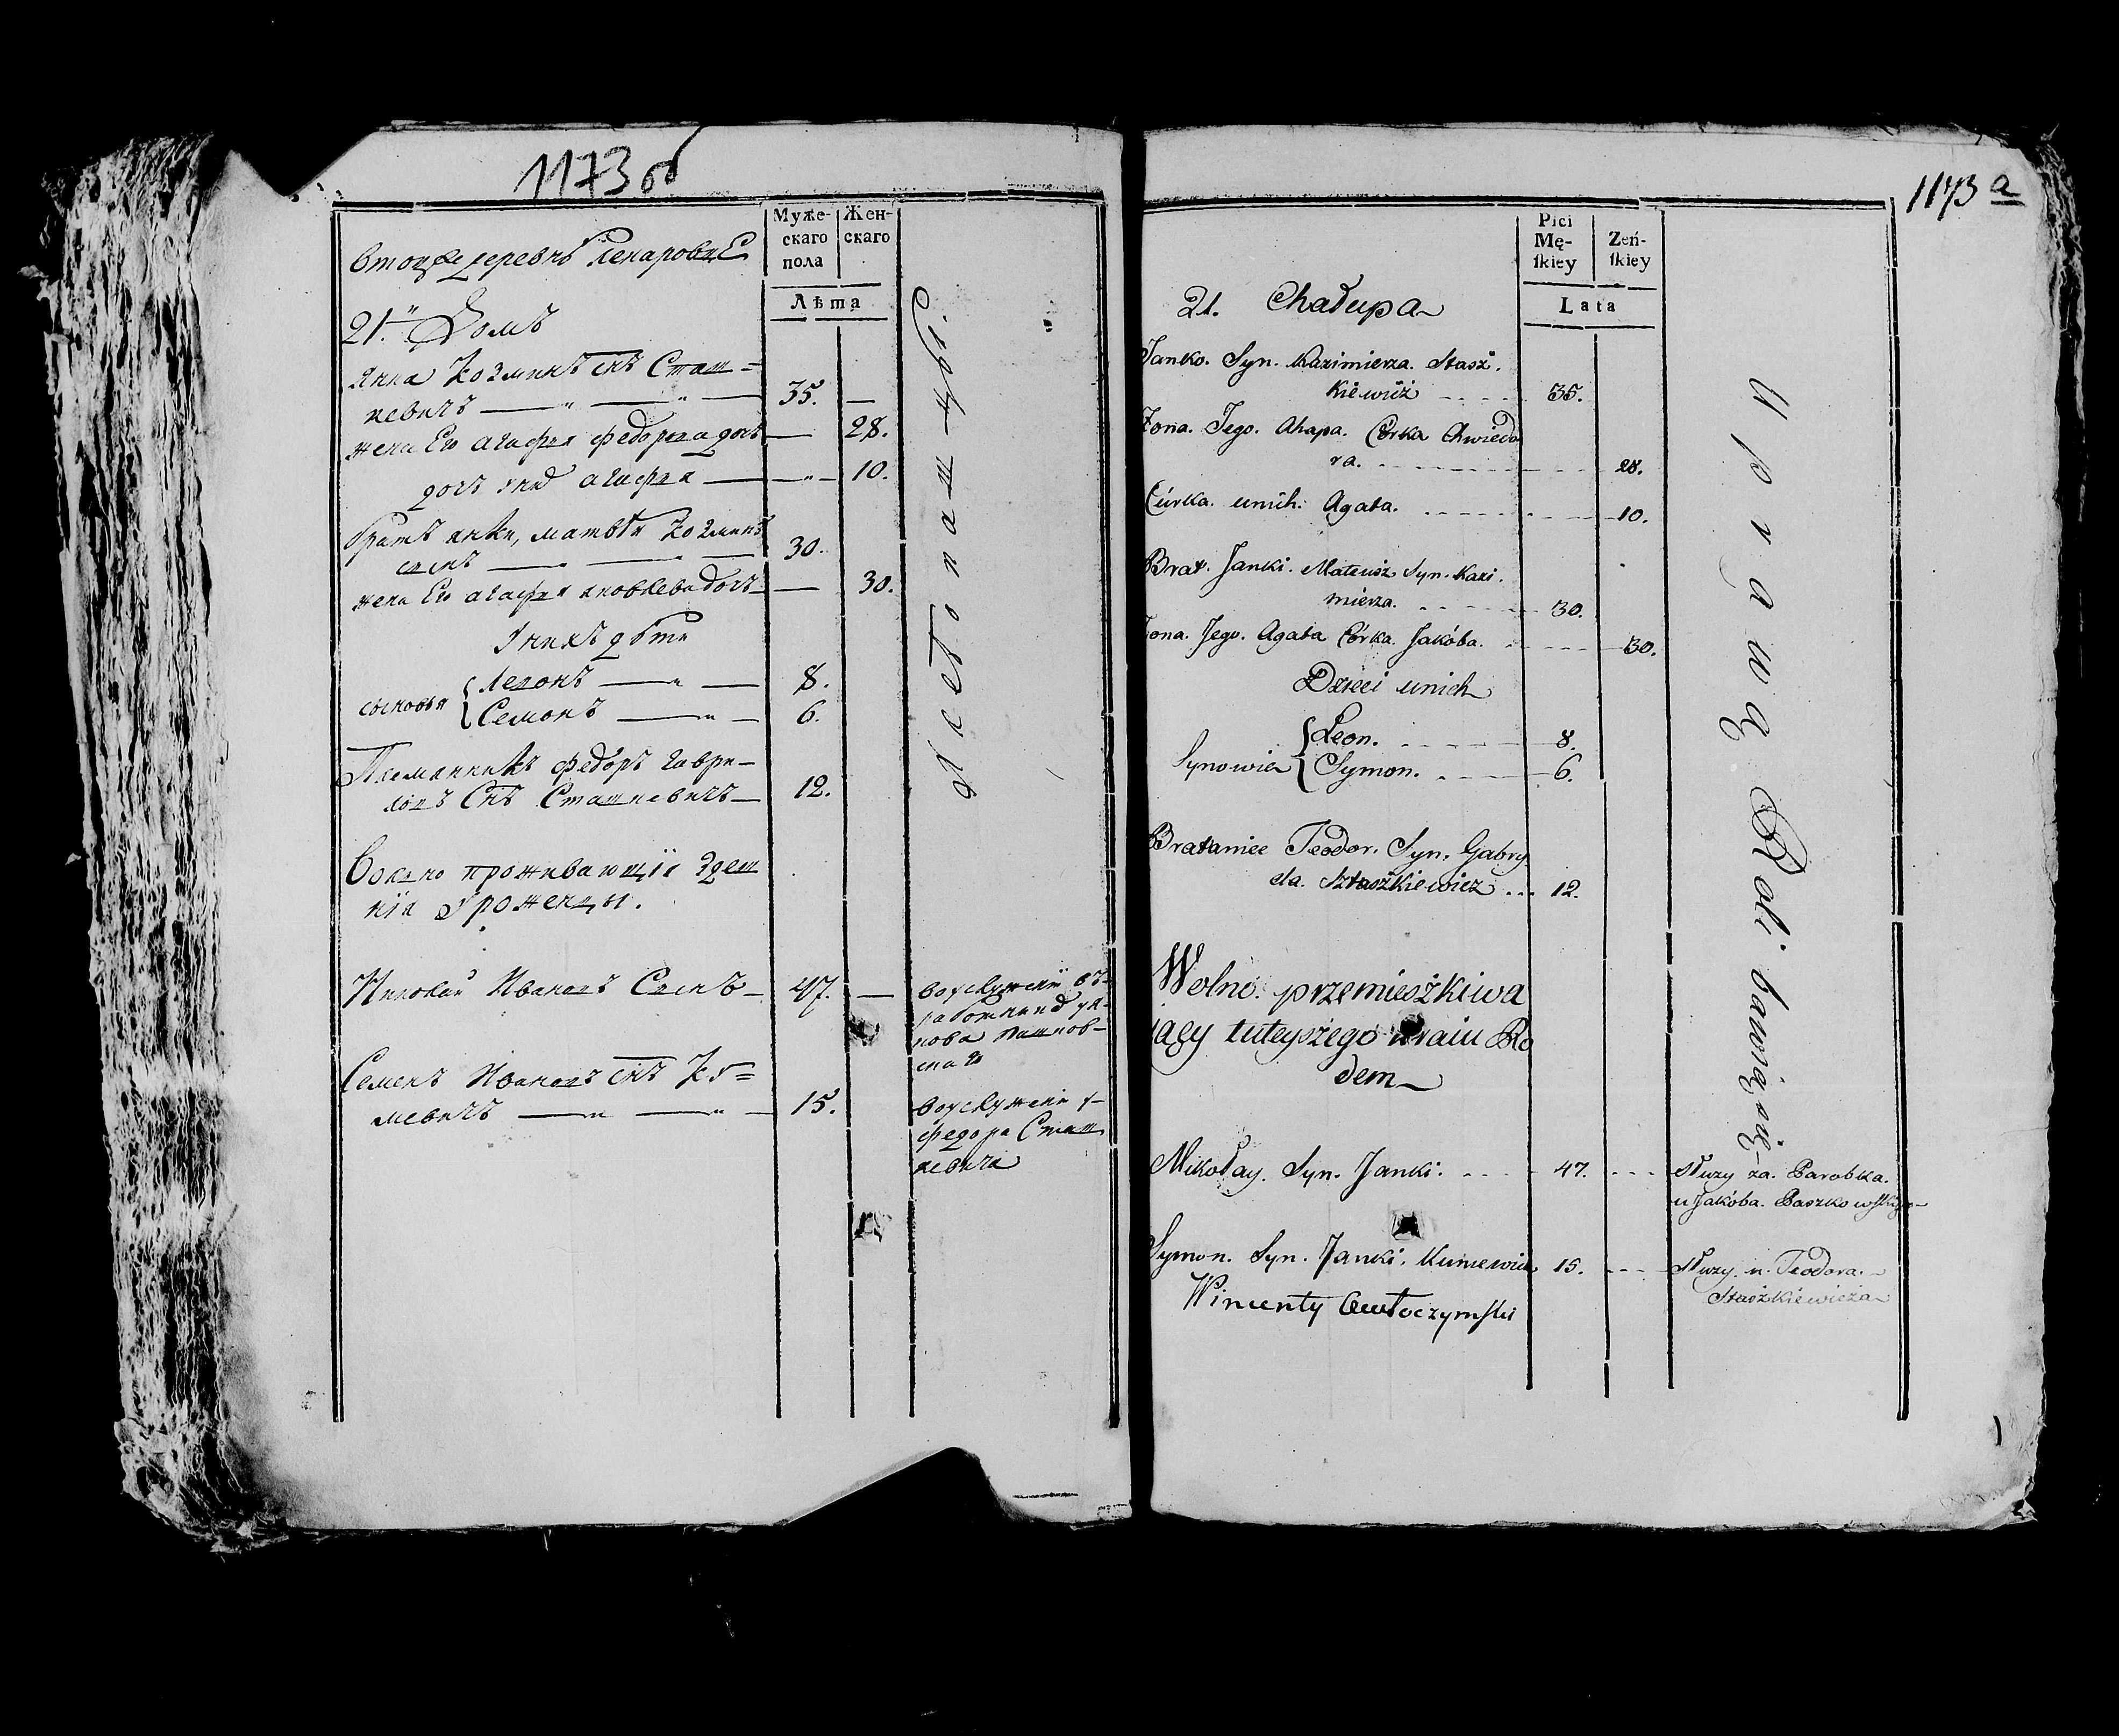 1173 об
Муже-
скаго
пола
Жен-
скаго
Лѣта
втойже деревнѣ
21. Домъ
Янка Козминъ снъ Сташ=
кевичъ 35. —
жена Его агафия федорова дочъ — 28.
дочъ унихъ агафия — 10.
братъ янки, матвѣй Козминъ
сынъ 30.
жена Его агафия яковлева дочъ — 30.
Унихъ дѣти
сыновья { Леонъ 8.
Семонъ 6.
Племянникъ федоръ гаври-
ловъ Снъ Сташкевичъ 12.
Волно проживающіи здеш
нія уроженцы.
Николай Ивановъ Сынъ 47. —
вуслуженіи въ
работникахъ уя-
кова пашков-
скаго
Семенъ Ивановъ снъ Ку=
мевичъ 15.
вуслуженіи у
федора Сташ
кевича
Хлебопашцы.
1173 a
Płci
Mę-
ſkiey
Żeń-
ſkiey
Lata
21. Chałupa
Janko. Syn. Kazimierza. Stasz.
kiewicz 35.
Żona. Jego. Ahapa. Córka Chwiedo
ra. 28.
Córka. unich. Agata. 10.
Brat. Janki. Mateusz Syn. Kazi.
mierza. 30.
Żona. Jego. Agata Córka. Jakóba. 30.
Dzieci unich
Synowie { Leon. 8.
Symon. 6.
Brataniec Teodor. Syn. Gabry
ela. Sztaszkiewicz 12.
Wolno. przemieszkiwa
jący tuteyszego kraiu Ro
dem
Mikołay. Syn. Janki. 47.
Służy za. Parobka.
u Jakóba. Paszkowskiego
Symon. Syn. Janki. Kuniewicz 15.
Służy. u. Teodora.
Staszkiewicza
Wincenty
Uprawą Roli bawią się